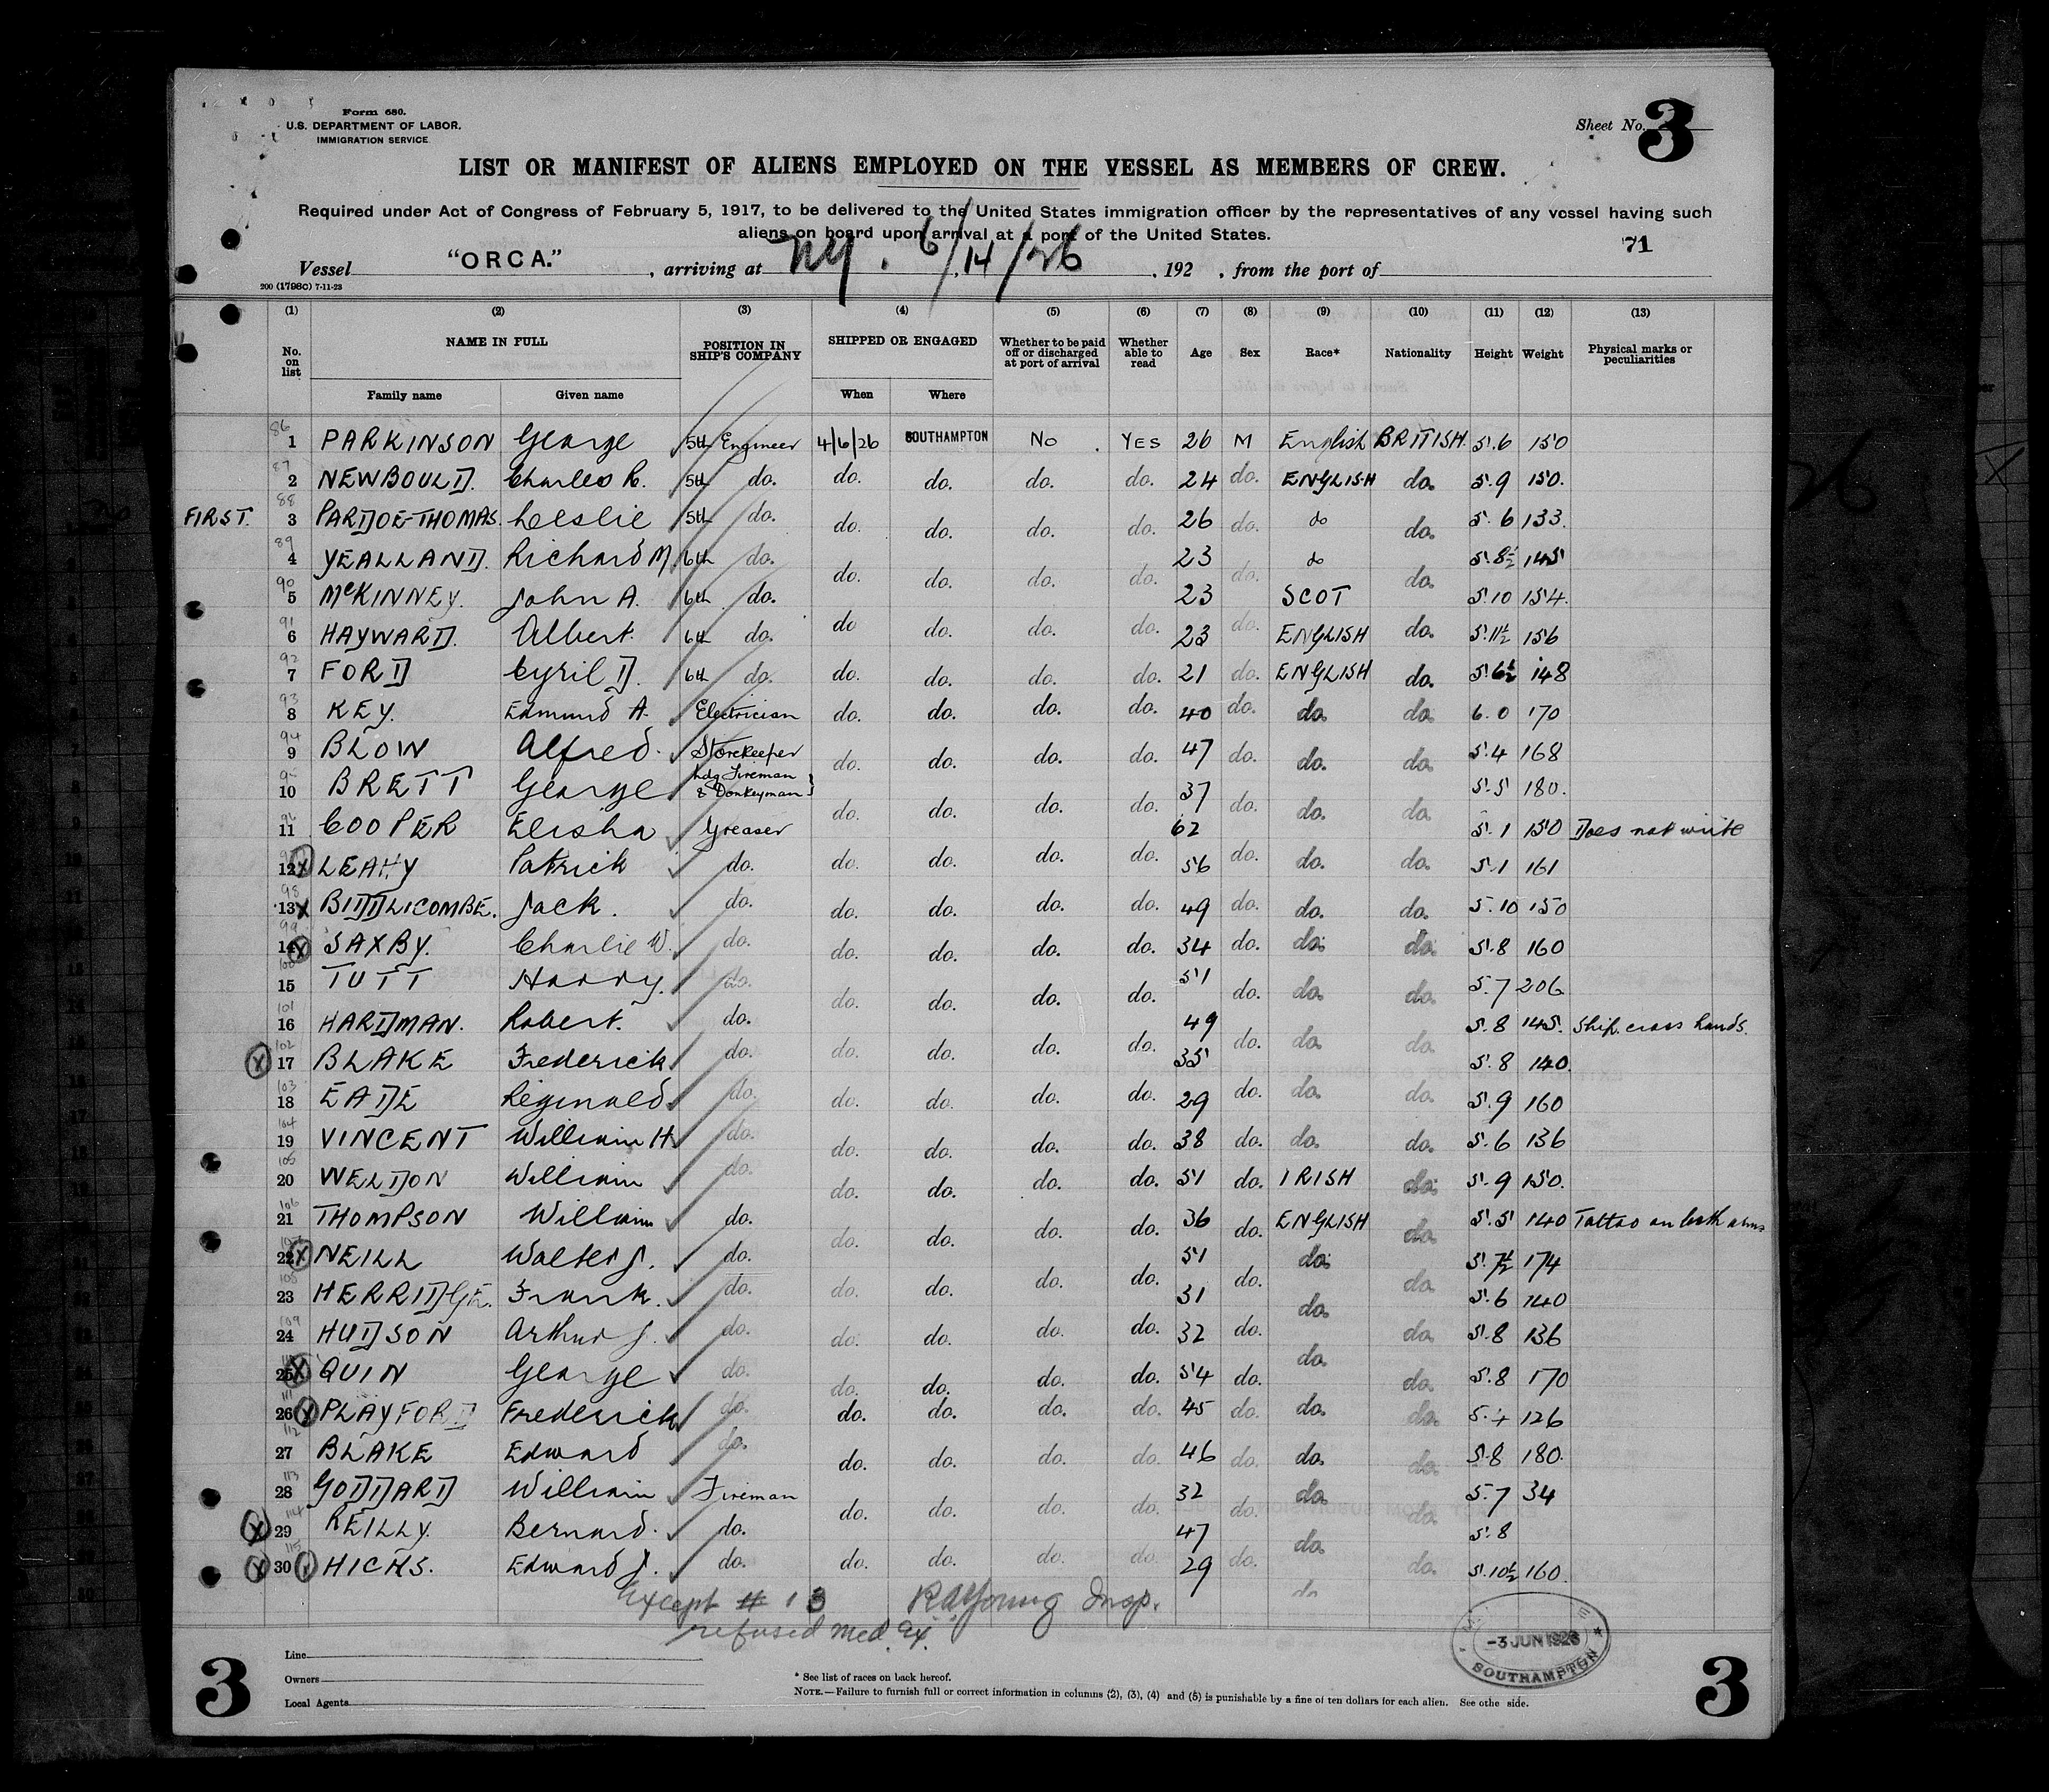 Form 680.
U.S. DEPARTMENT OF LABOR.
IMMIGRATION SERVICE
Sheet No. 3
LIST OR MANIFEST OF ALIENS EMPLOYED ON THE VESSEL AS MEMBERS OF CREW.
Required under Act of Congress of February 5, 1917, to be delivered to the United States immigration officer by the representatives of any vessel having such
aliens on board upon arrival at a port of the United States.
71
Vessel "ORCA." , arriving at NY. 6/14/26 , 192 , from the port of
200 (1798c) 7-11-23
(1) (2) (3) (4) (5) (6) (7) (8) (9) (10) (11) (12) (13)
No. on list NAME IN FULL POSITION IN SHIP'S COMPANY SHIPPED OR ENGAGED Whether to be paid off or discharged at port of arrival Whether able to read Age Sex Race* Nationality Height Weight Physical marks or peculiarities
Family name Given name When Where
86 1 PARKINSON George 5th Engineer 4/6/26 SOUTHAMPTON No YES 26 M English BRITISH. 5.6 150
87 2 NEWBOULD. Charles R. 5th do. do. do. do. do. 24 do. ENGLISH do. 5.9 150.
FIRST. 88 3 PARDOE-THOMAS. Leslie 5th do. do. do. do. do. 26 do. do do. 5.6 133.
89 4 YEALLAND. Richard M 6th do. do. do. do. do. 23 do. do do. 5.8½ 145
90 5 McKINNEY. John A. 6th do. 23 SCOT 5.10 154.
91 6 HAYWARD. Albert. 6th do. do do. do. do. 23 do. ENGLISH do. 5.11½ 156
92 7 FORD Cyril D. 6th do. do. do. do. do. 21 do. ENGLISH do. 5.6½ 148
93 8 KEY. Edmund A. Electrician do. do. do. do. 40 do. do. do. 6.0 170
94 9 BLOW Alfred. Storekeeper do. do. do. do. 47 do. do. do. 5.4 168
95 10 BRETT George Ldg Fireman & Donkeyman } do. do. do. do. 37 do. do. do. 5.5 180.
96 11 COOPER Elisha Greaser 62 5.1 150 Does not write
12 X LEAHY Patrick do. do. do. do. do. 56 do. do. do. 5.1 161
98 13 X BIDDLICOMBE. Jack. do. do. do. do. do. 49 do. do. do. 5.10 150
99 14 X SAXBY. Charlie W. do. do. do. do. do. 34 do. do. do. 5.8 160
100 15 TUTT Harry. do. do. do. do. do. 51 do. do. do. 5.7 206
101 16 HARDMAN. Robert. do. 49 5.8 145. Ship. cross hands.
102 X 17 BLAKE Frederick do. do. do. do. do. 35 do. do. do. 5.8 140.
103 18 EADE Reginald do. do. do. do. do. 29 do. do. do. 5.9 160
104 19 VINCENT William H. do. do. do. do. do. 38 do. do. do. 5.6 136
105 20 WELDON William do. do. do. do. do. 51 do. IRISH do. 5.9 150.
106 21 THOMPSON William do. do. do. do. do. 36 do. ENGLISH do. 5.5 140 Tattoo on both arms
107 22 X NEILL Walter J. do. 51 do. 5.7½ 174
108 23 HERRIDGE. Frank. do. do. do. do. do. 31 do. do. do. 5.6 140
109 24 HUDSON Arthur J. do. do. do. do. do. 32 do. do. do. 5.8 136
25 X QUIN George do. do. do. do. do. 54 do. do. do. 5.8 170
111 26 X PLAYFORD Frederick do. do. do. do. do. 45 do. do. do. 5.4 126
112 27 BLAKE Edward do. do. do. do. do. 46 do. do. do. 5.8 180.
113 28 GODDARD William Fireman do. do. do. do. 32 do. do. do. 5.7 34
114 X 29 REILLY. Bernard. do. 47 do. 5.8
115 X 30 HICKS. Edward J. do. do. do. do. do. 29 do. do. do. 5.10½ 160.
Except # 13 RA Young Insp.
refused med. Ex.
-3 JUN 1926
SOUTHAMPTON
3 3
Line
Owners
Local Agents
* See list of races on back hereof.
NOTE.—Failure to furnish full or correct information in columns (2), (3), (4) and (5) is punishable by a fine of ten dollars for each alien. See othe side.